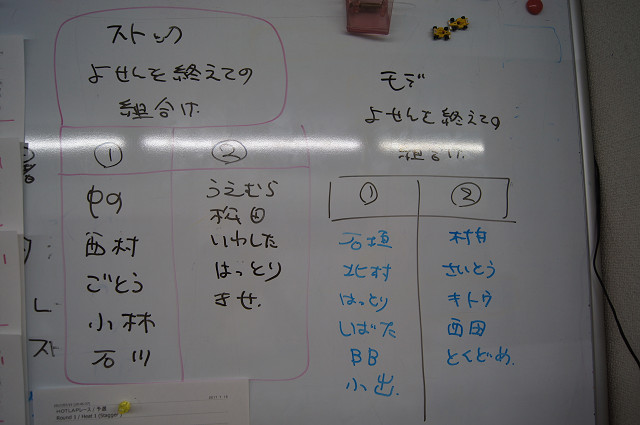 ストック
よせんを終えての
組合け
① ②
中の
西村
ごとう
小林
石川
うえむら
松田
いわした
はっとり
ませ.
モデ
よせんを終えての
組合け
① ②
石垣
北村
はっとり
いばた
BB
小出.
村自
さいとう
キトウ
西田
とくどめ.
HOTLAPレース / 予選
Round 1 / Heat 1 (Stagger)